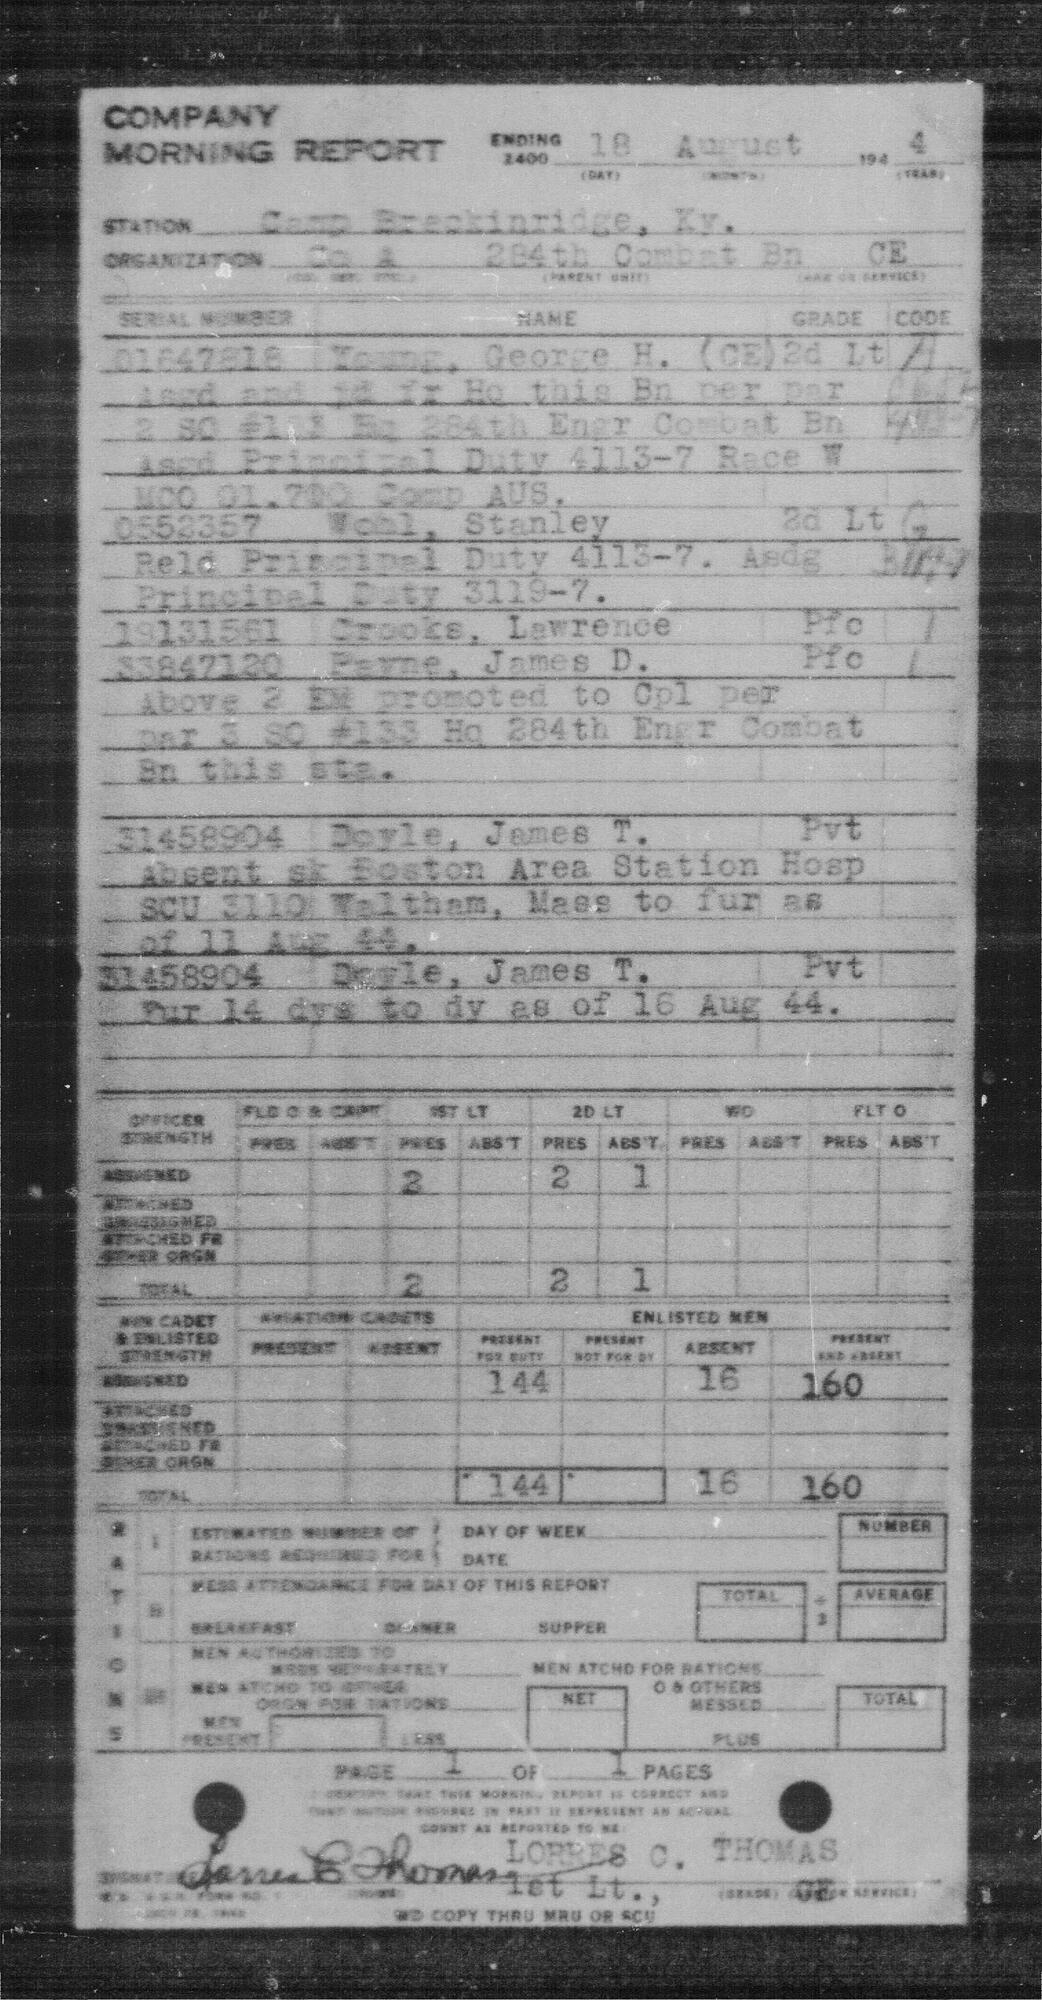 COMPANY
MORNING REPORT ENDING 2400 18 August 194 4
(DAY) (MONTH) (YEAR)
STATION Camp Breckinridge, Ky.
ORGANIZATION Co A 284th Combat Bn CE
(PARENT UNIT) (ARM OR SERVICE)
SERIAL NUMBER NAME GRADE CODE
01847818 Young, George H. (CE) 2d Lt A
Asgd and jd fr Hq this Bn per par
2 SO #133 Hq 284th Engr Combat Bn
Asgd Principal Duty 4113-7 Race W
MCO 01.700 Comp AUS.
0552357 Wohl, Stanley 2d Lt G
Reld Principal Duty 4113-7. Asdg
Principal Duty 3119-7.
19131561 Crooks, Lawrence Pfc
33847120 Payne, James D. Pfc
Above 2 EM promoted to Cpl per
par 3 SO #133 Hq 284th Engr Combat
Bn this sta.
31458904 Doyle, James T. Pvt
Absent sk Boston Area Station Hosp
SCU 3110 Waltham, Mass to fur as
of 11 Aug 44.
31458904 Doyle, James T. Pvt
Fur 14 dys to dy as of 16 Aug 44.
OFFICER STRENGTH FLD O & CAPT 1ST LT 2D LT WO FLT O
PRES ABS'T PRES ABS'T PRES ABS'T PRES ABS'T PRES ABS'T
ASSIGNED 2 2 1
ATTACHED UNASSIGNED
ATTACHED FR OTHER ORGN
TOTAL 2 2 1
AVN CADET & ENLISTED STRENGTH AVIATION CADETS ENLISTED MEN
PRESENT ABSENT PRESENT FOR DUTY PRESENT NOT FOR DY ABSENT PRESENT AND ABSENT
ASSIGNED 144 16 160
ATTACHED UNASSIGNED
ATTACHED FR OTHER ORGN
TOTAL 144 16 160
RATIONS
I ESTIMATED NUMBER OF RATIONS REQUIRED FOR DAY OF WEEK NUMBER
DATE
II MESS ATTENDANCE FOR DAY OF THIS REPORT TOTAL ÷ 3 AVERAGE
BREAKFAST DINNER SUPPER
III MEN AUTHORIZED TO MESS SEPARATELY MEN ATCHD FOR RATIONS
MEN ATCHD TO OTHER ORGN FOR RATIONS NET O & OTHERS MESSED TOTAL
MEN PRESENT LESS PLUS
PAGE 1 OF 1 PAGES
I CERTIFY THAT THIS MORNING REPORT IS CORRECT AND
THAT RATION FIGURES IN PART II REPRESENT AN ACTUAL
COUNT AS REPORTED TO ME:
LORRES C. THOMAS
Lorres C Thomas
1st Lt., CE
(GRADE) (ARM OR SERVICE)
WD COPY THRU MRU OR SCU